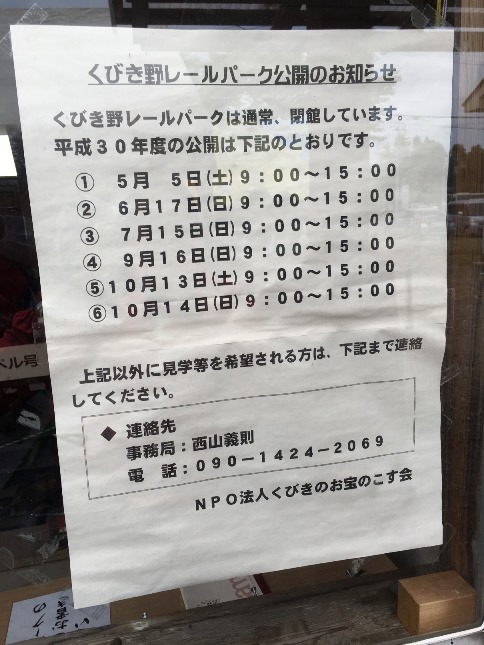 くびき野レールパーク公開のお知らせ
くびき野レールパークは通常、閉館しています。
平成30年度の公開は下記のとおりです。
① 5月 5日(土)9:00~15:00
② 6月17日(日)9:00~15:00
③ 7月15日(日)9:00~15:00
④ 9月16日(日)9:00~15:00
⑤10月13日(土)9:00~15:00
⑥10月14日(日)9:00~15:00
上記以外に見学等を希望される方は、下記まで連絡
してください。
◆ 連絡先
事務局:西山義則
電 話:090-1424-2069
NPO法人くびきのお宝のこす会
ベル号